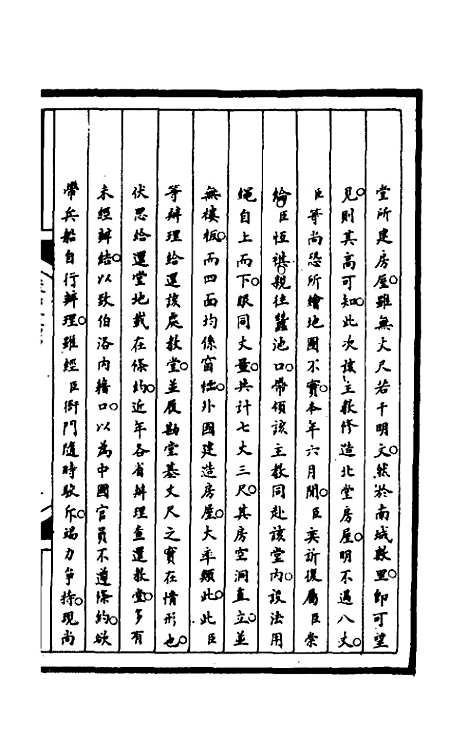 堂所建房屋。雖無丈尺若干明文。然於南城數里。即可望
見。則其高可知。此次該主教修造北堂房屋。明不過八丈。
臣等尚恐所繪地圖不實。本年六月間。臣奕訢復屬臣崇
綸臣恆祺。親往蠶池口。帶領該主教同赴該堂內。設法用
繩自上而下。眼同丈量。共計七丈三尺。其房空洞直立。並
無樓板。而四面均係窗櫺。外國建造房屋。大率類此。此臣
等辦理給還該處教堂。並履勘堂基丈尺之實在情形也。
伏思給還堂地載在條約。近年各省辦理查還教堂。多有
未經辦結。以致伯洛內藉口。以為中國官員不遵條約。欲
帶兵船自行辦理。雖經臣衙門隨時駁斥。竭力爭持。現尚